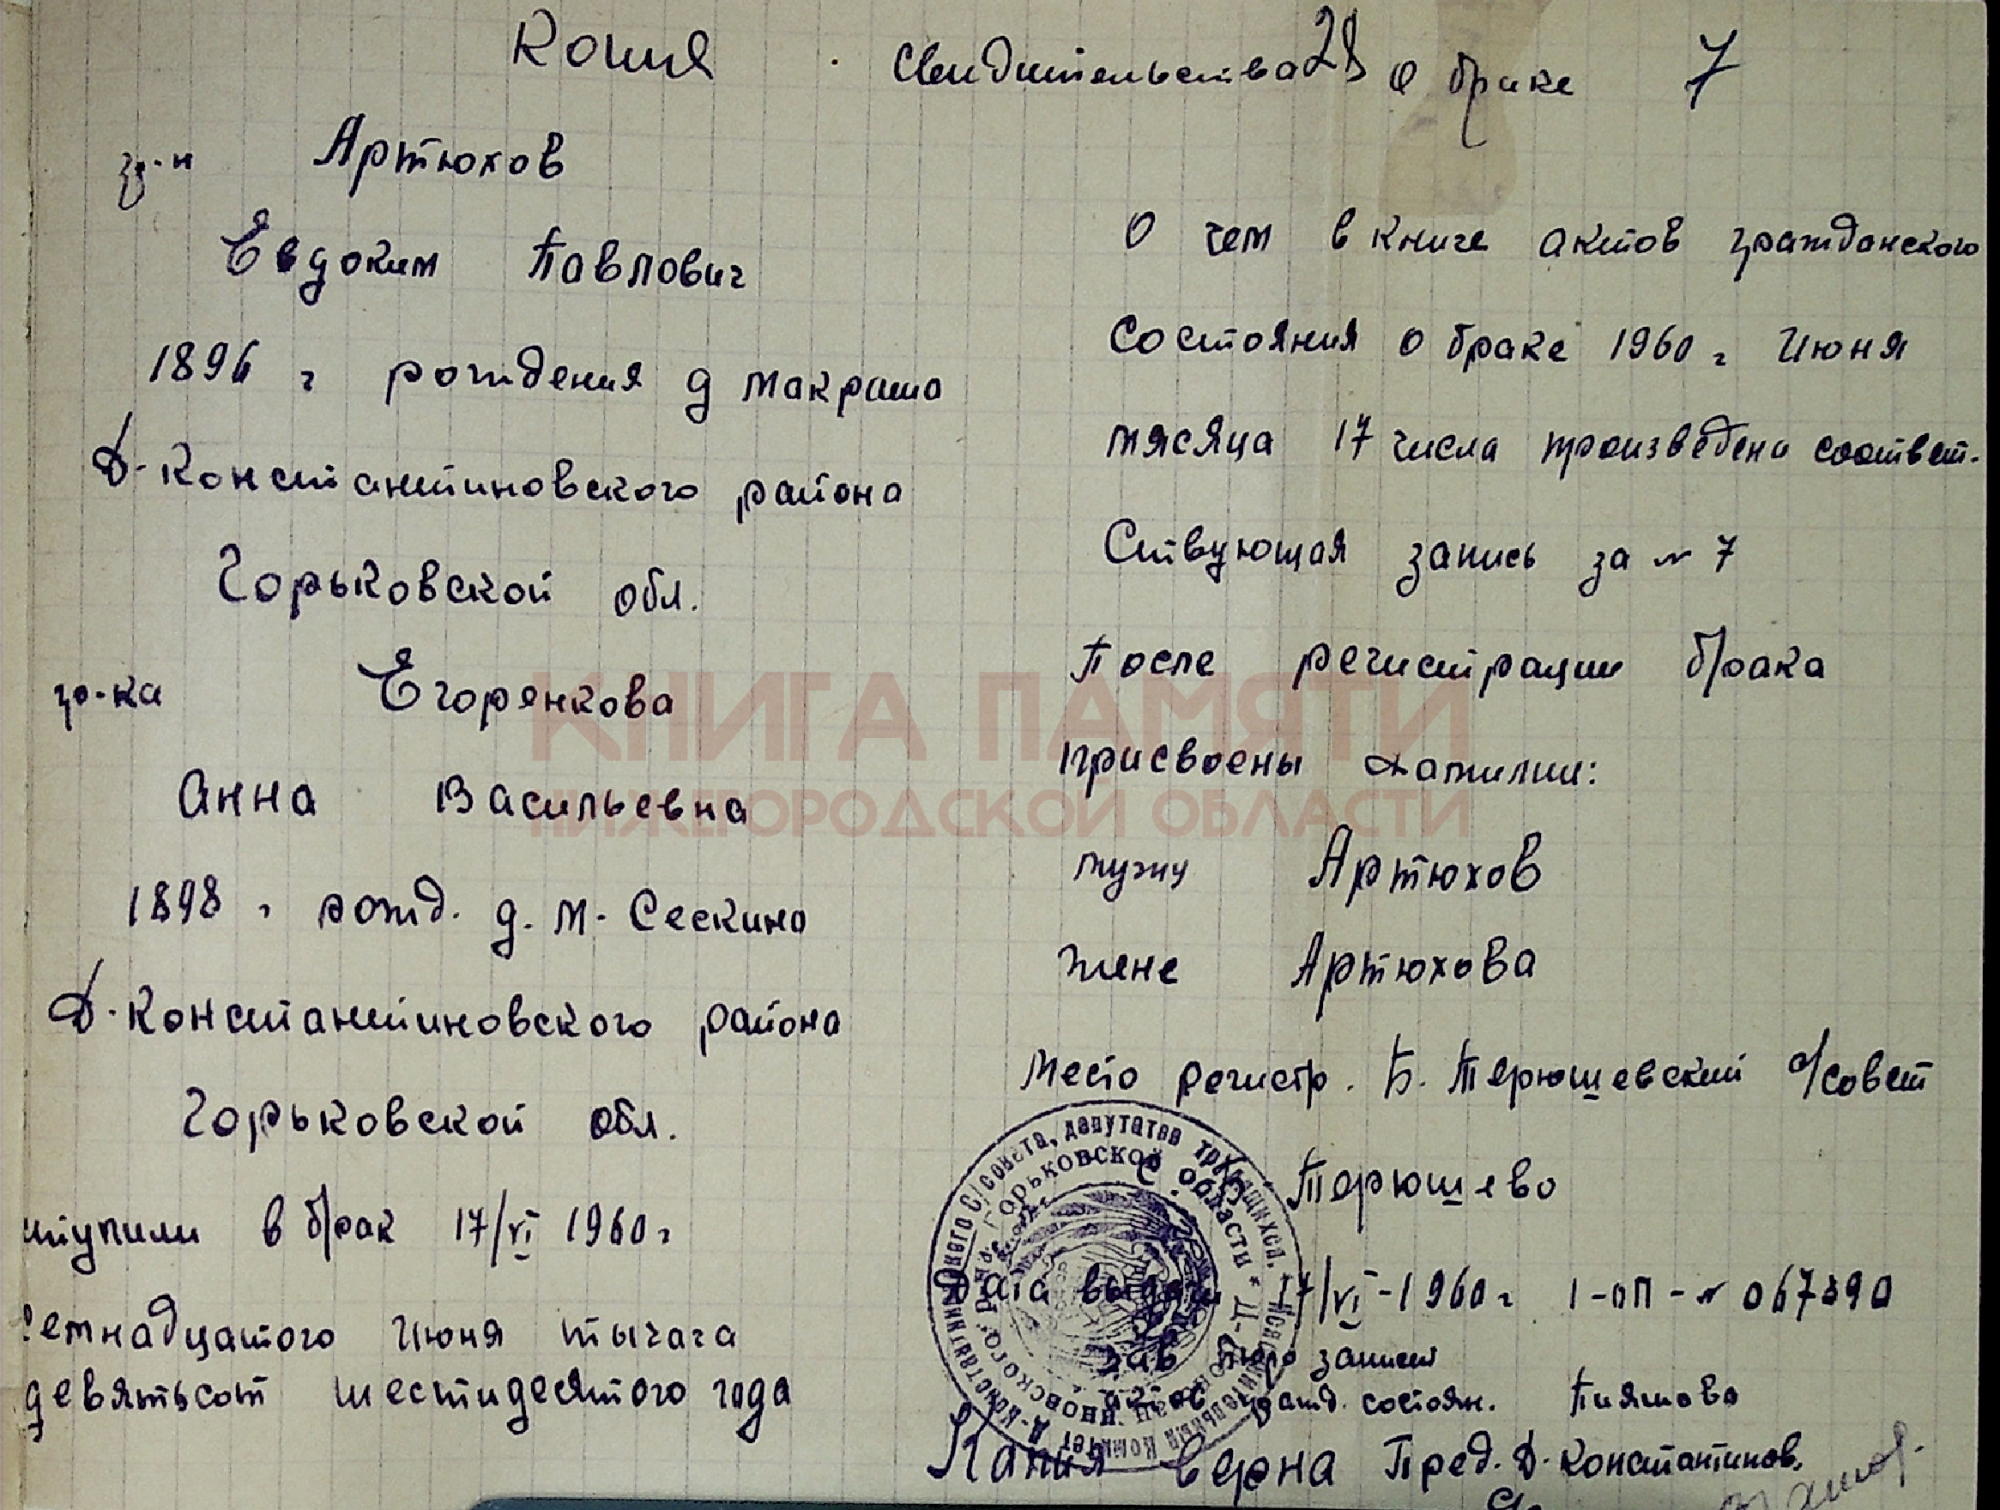 Копия Свидительства 28 о браке 7
гр-н Артюхов
Евдоким Павлович
1896 г рождения д Макраша
Д-Константиновского района
Горьковской обл.
гр-ка Егоренкова
Анна Васильевна
1898 г рожд. д. М. Сескино
Д-Константиновского района
Горьковской обл.
ступили в брак 17/VI 1960г
Семнадцатого Июня тысяча
девятьсот шестидесятого года
О чем в книге актов гражданского
Состояния о браке 1960 г Июня
мясяца 17 числа произведена соответ-
Ствующая запись за № 7
После регистрации брака
присвоены фамилии:
мужу Артюхов
жене Артюхова
Место регистр. Б. Терюшевский с/совет
С. Б Терюшево
Дата выдачи 17/VI-1960г 1-ОП-№ 067390
Зав бюро записей
актов гражд. состоян. Пияшова
Капия верна Пред. Д-Константинов.
КНИГА ПАМЯТИ
НИЖЕГОРОДСКОЙ ОБЛАСТИ
Исполнительный комитет Д-Константиновского С/совета, депутатов трудящихся.
Д-Константиновского р-на Горьковской области